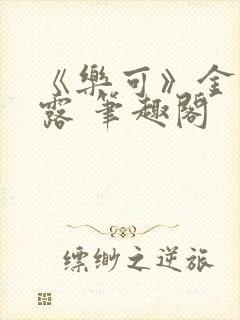 《樂可》金
露 筆趣閣
缥缈之逆旅